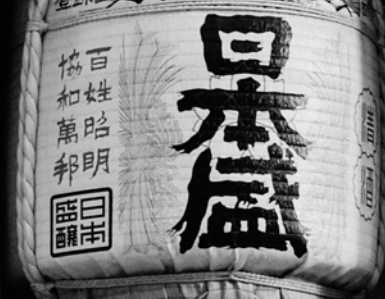 日本盛
百姓昭明
協和萬邦
日本
盛醸
清酒